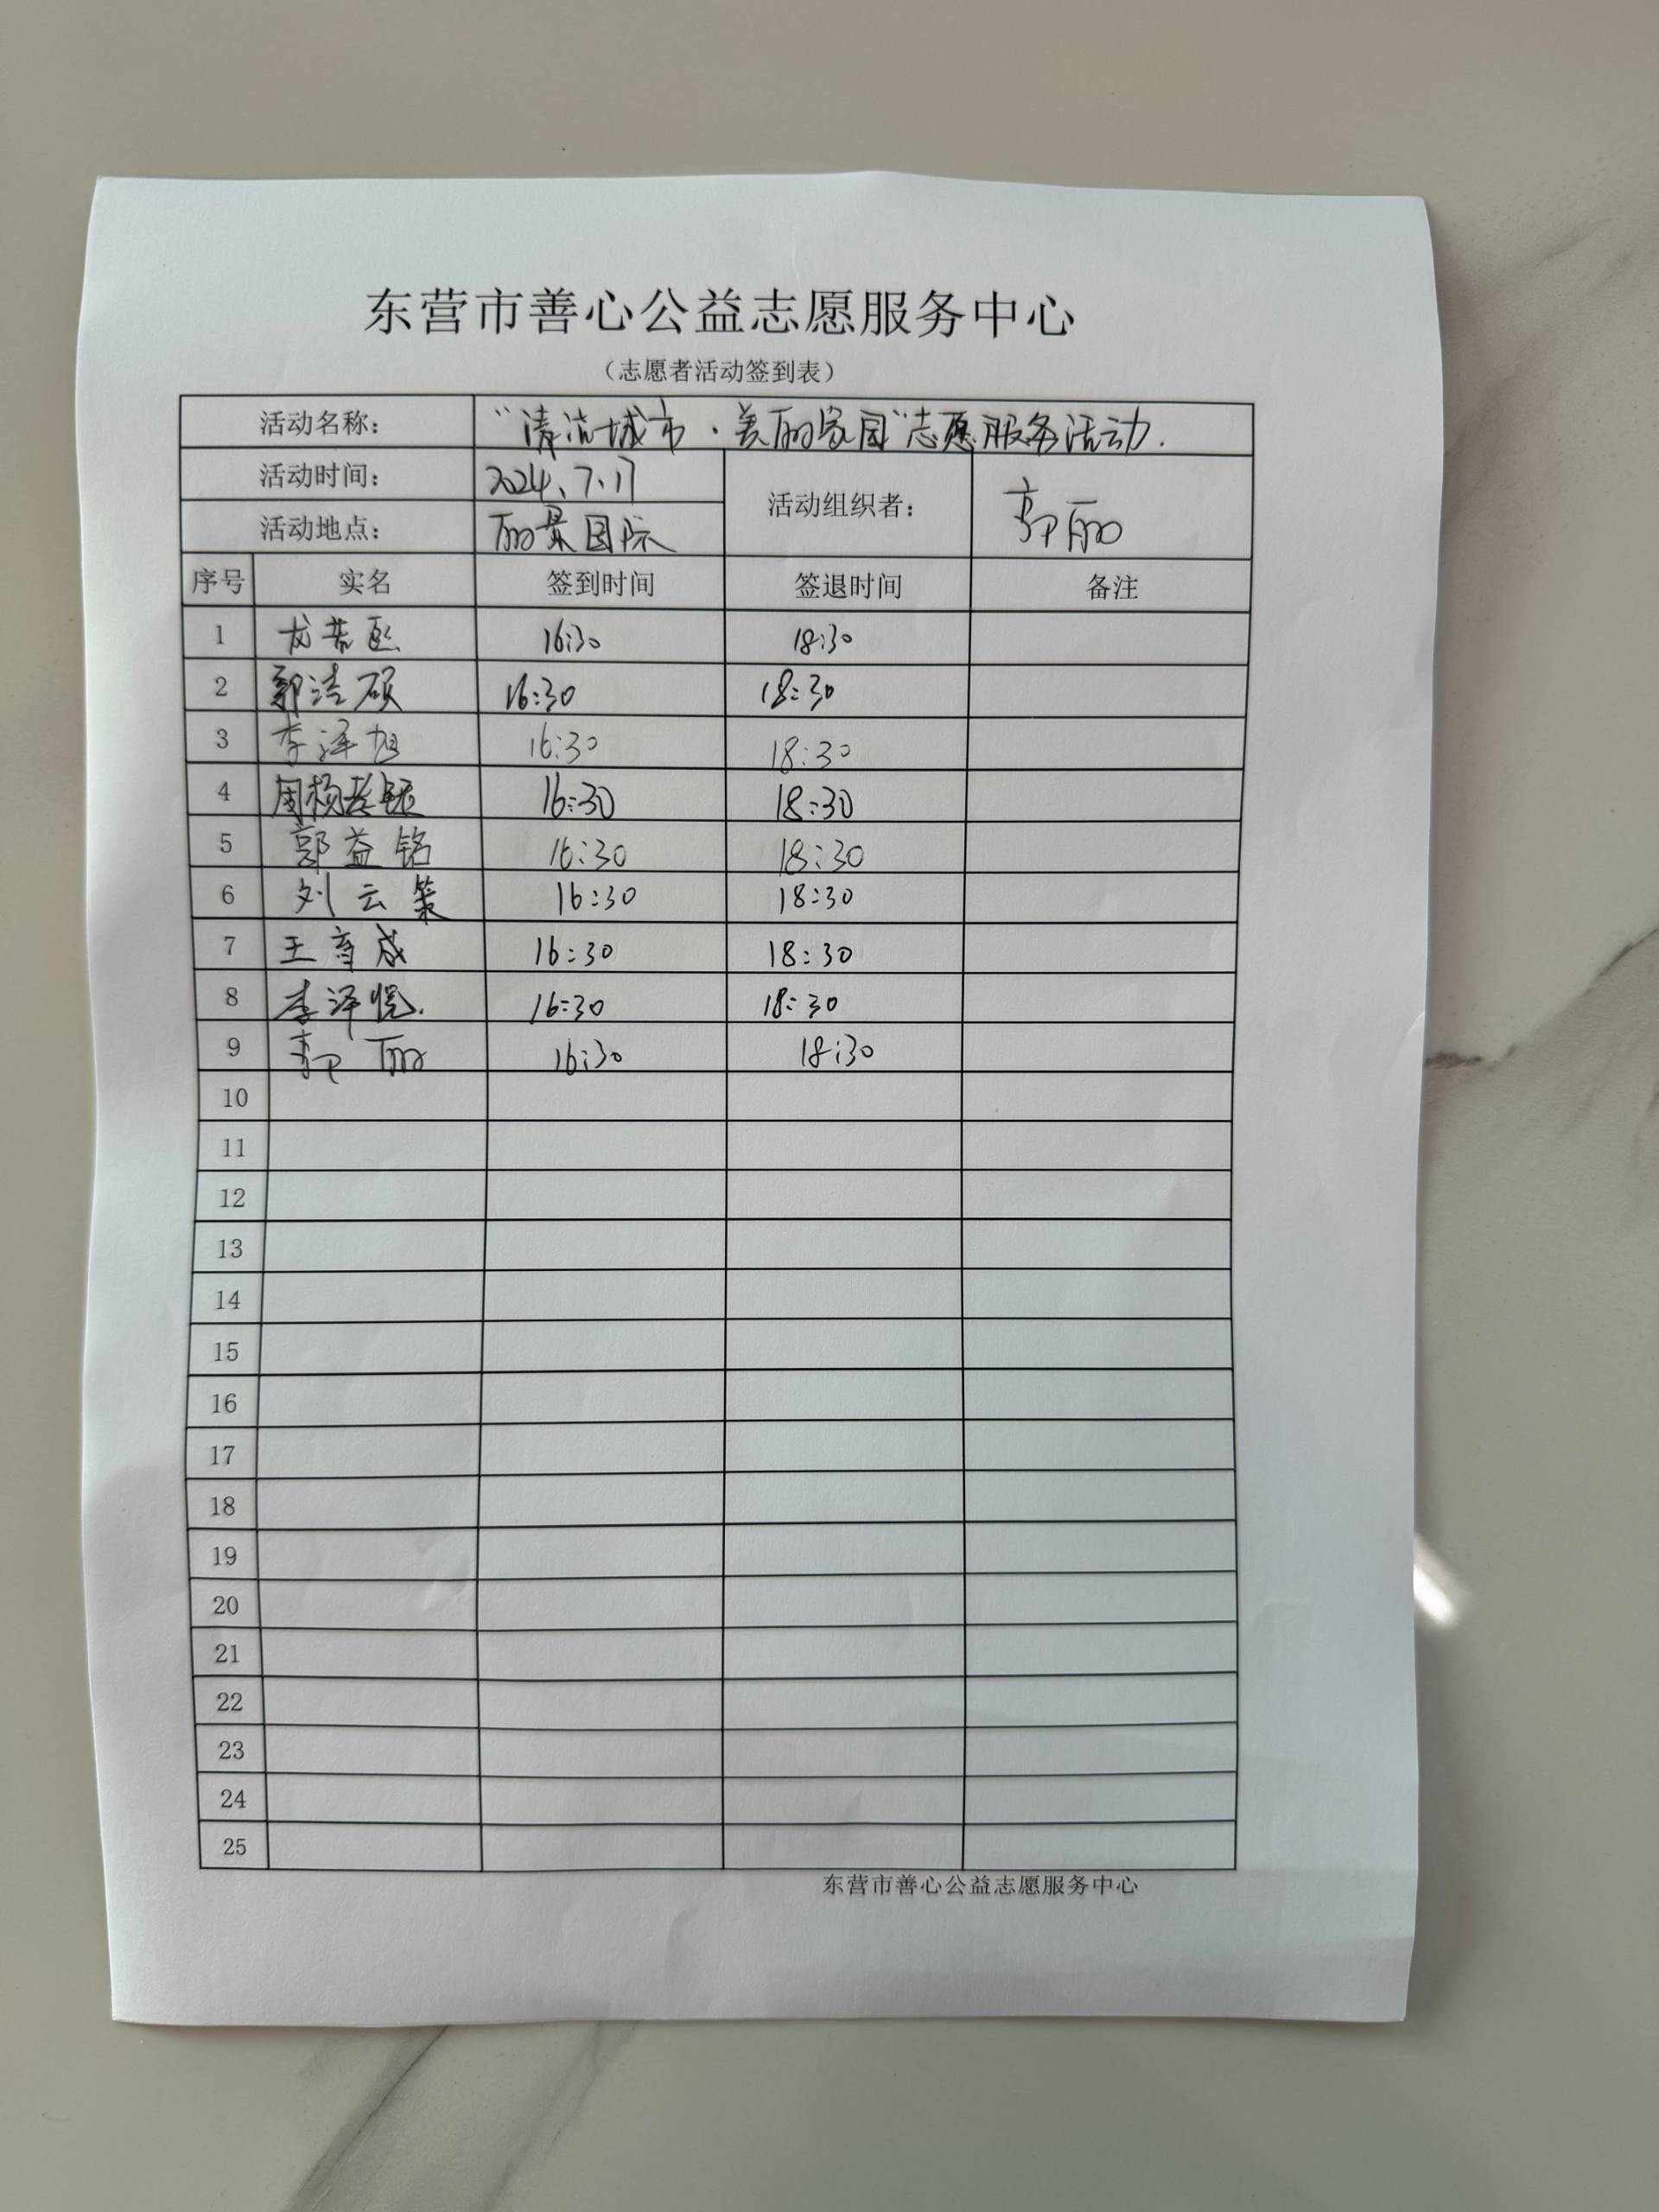 东营市善心公益志愿服务中心
（志愿者活动签到表）
活动名称： “清洁城市·美丽家园”志愿服务活动.
活动时间： 2024、7、17 活动组织者： 郭丽
活动地点： 丽景国际
序号 实名 签到时间 签退时间 备注
1 16:30 18:30
2 郭洁硕 16:30 18:30
3 李泽旭 16:30 18:30
4 周杨 16:30 18:30
5 郭益铭 16:30 18:30
6 刘云策 16:30 18:30
7 王育成 16:30 18:30
8 李泽悦. 16:30 18:30
9 郭丽 16:30 18:30
10
11
12
13
14
15
16
17
18
19
20
21
22
23
24
25
东营市善心公益志愿服务中心